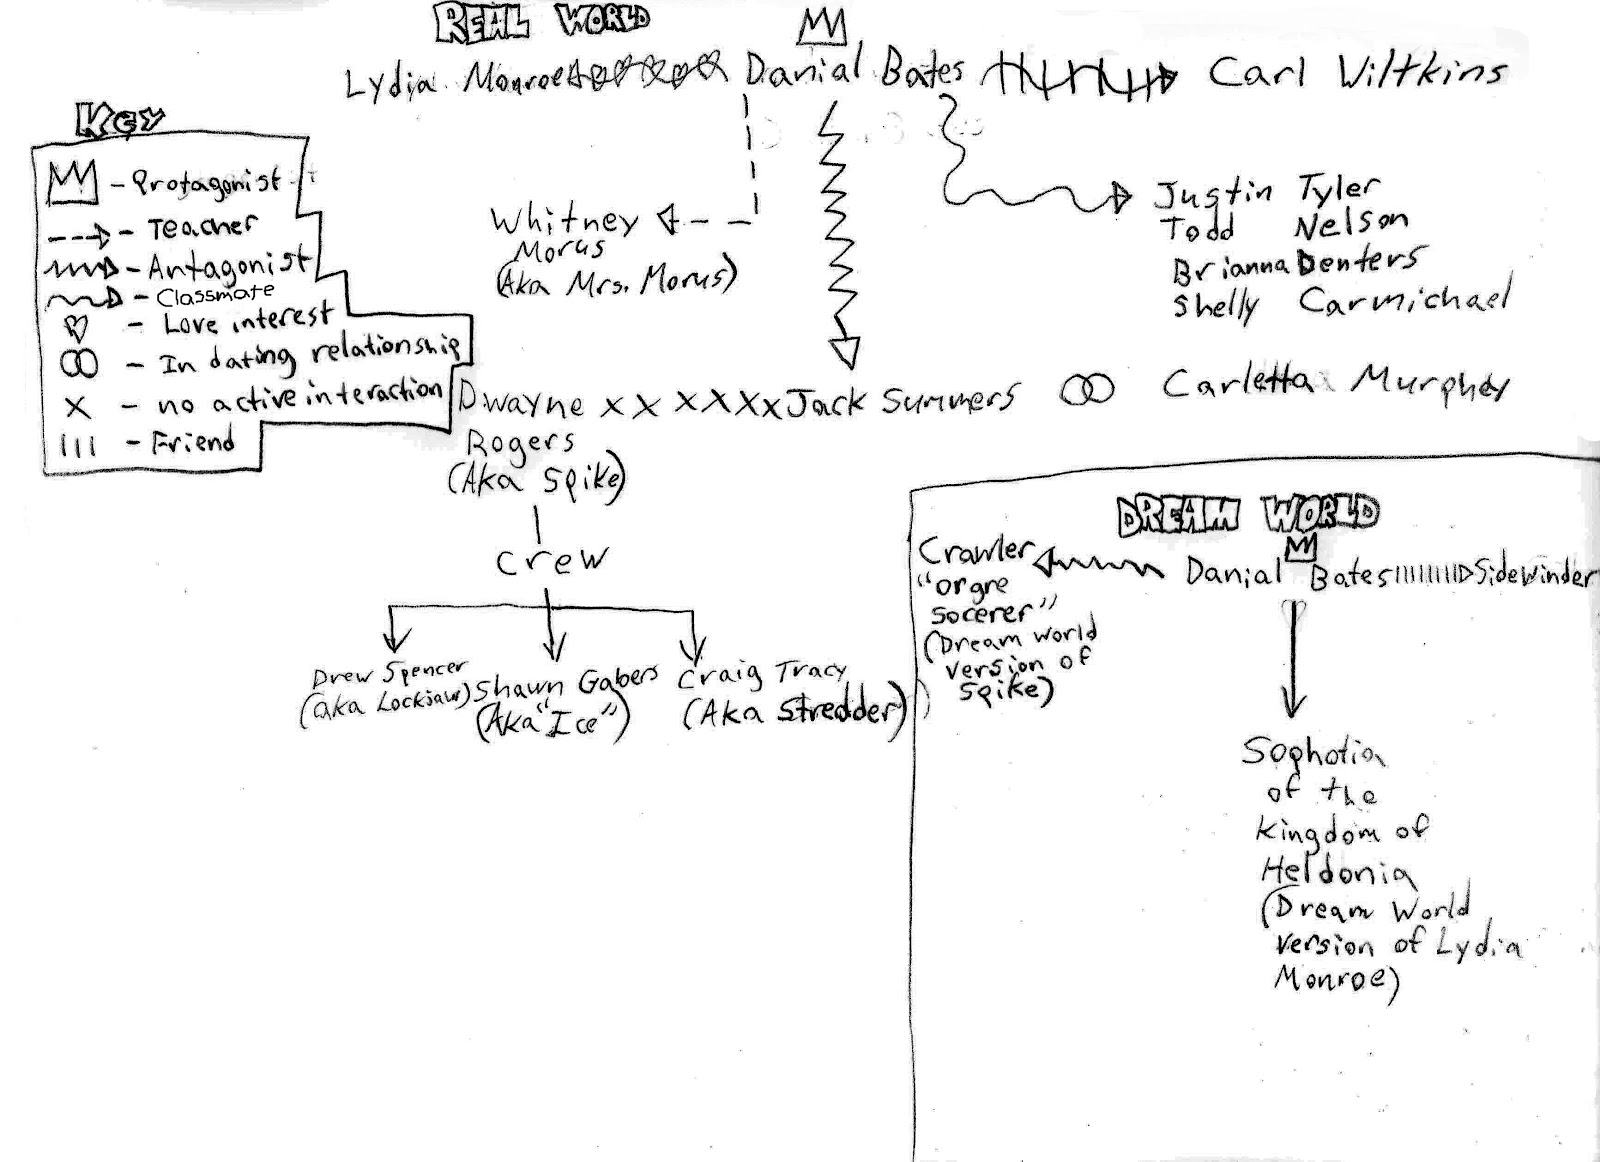 REAL WORLD
Lydia Monroe Danial Bates Carl Wiltkins
Key
- Protagonist
- Teacher
- Antagonist
- Classmate
- Love interest
- In dating relationship
X - no active interaction
III - Friend
Whitney
Morus
(Aka Mrs. Morus)
Justin Tyler
Todd Nelson
Brianna Denters
Shelly Carmichael
Dwayne X X X X X X Jack Summers Carletta Murphey
Rogers
(Aka Spike)
Crew
Drew Spencer
(aka Lockjaw)
Shawn Gabers
(Aka "Ice")
Craig Tracy
(Aka Stredder)
DREAM WORLD
Crawler
"orgre
Socerer"
(Dream world
version of
Spike)
Danial Bates Sidewinder
Sophotia
of the
Kingdom of
Heldonia
(Dream World
version of Lydia
Monroe)